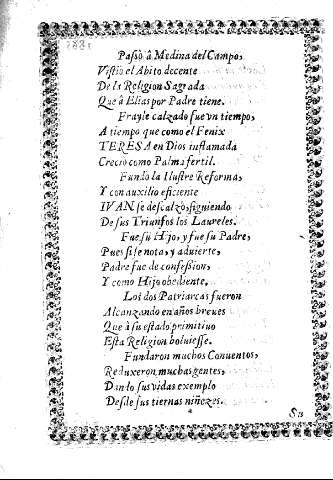 Passò â Medina del Campo,
Vistiò el Abito decente
De la Religion Sagrada
Que â Elias por Padre tiene.
Frayle calzado fue vn tiempo,
A tiempo que como el Fenix
TERESA en Dios inflamada
Creciò como Palma fertil.
Fundò la Ilustre Reforma,
Y con auxilio eficiente
IVAN se descalzò, siguiendo
De sus Triunfos los Laureles.
Fue su Hijo, y fue su Padre,
Pues si se nota, y aduierte,
Padre fue de confession,
Y como Hijo obediente.
Los dos Patriarcas fueron
Alcanzando en años breues
Que â su estado primitiuo
Esta Religion boluiesse.
Fundaron muchos Conuentos,
Reduxeron muchas gentes,
Dando sus vidas exemplo
Desde sus tiernas niñezes.
Su